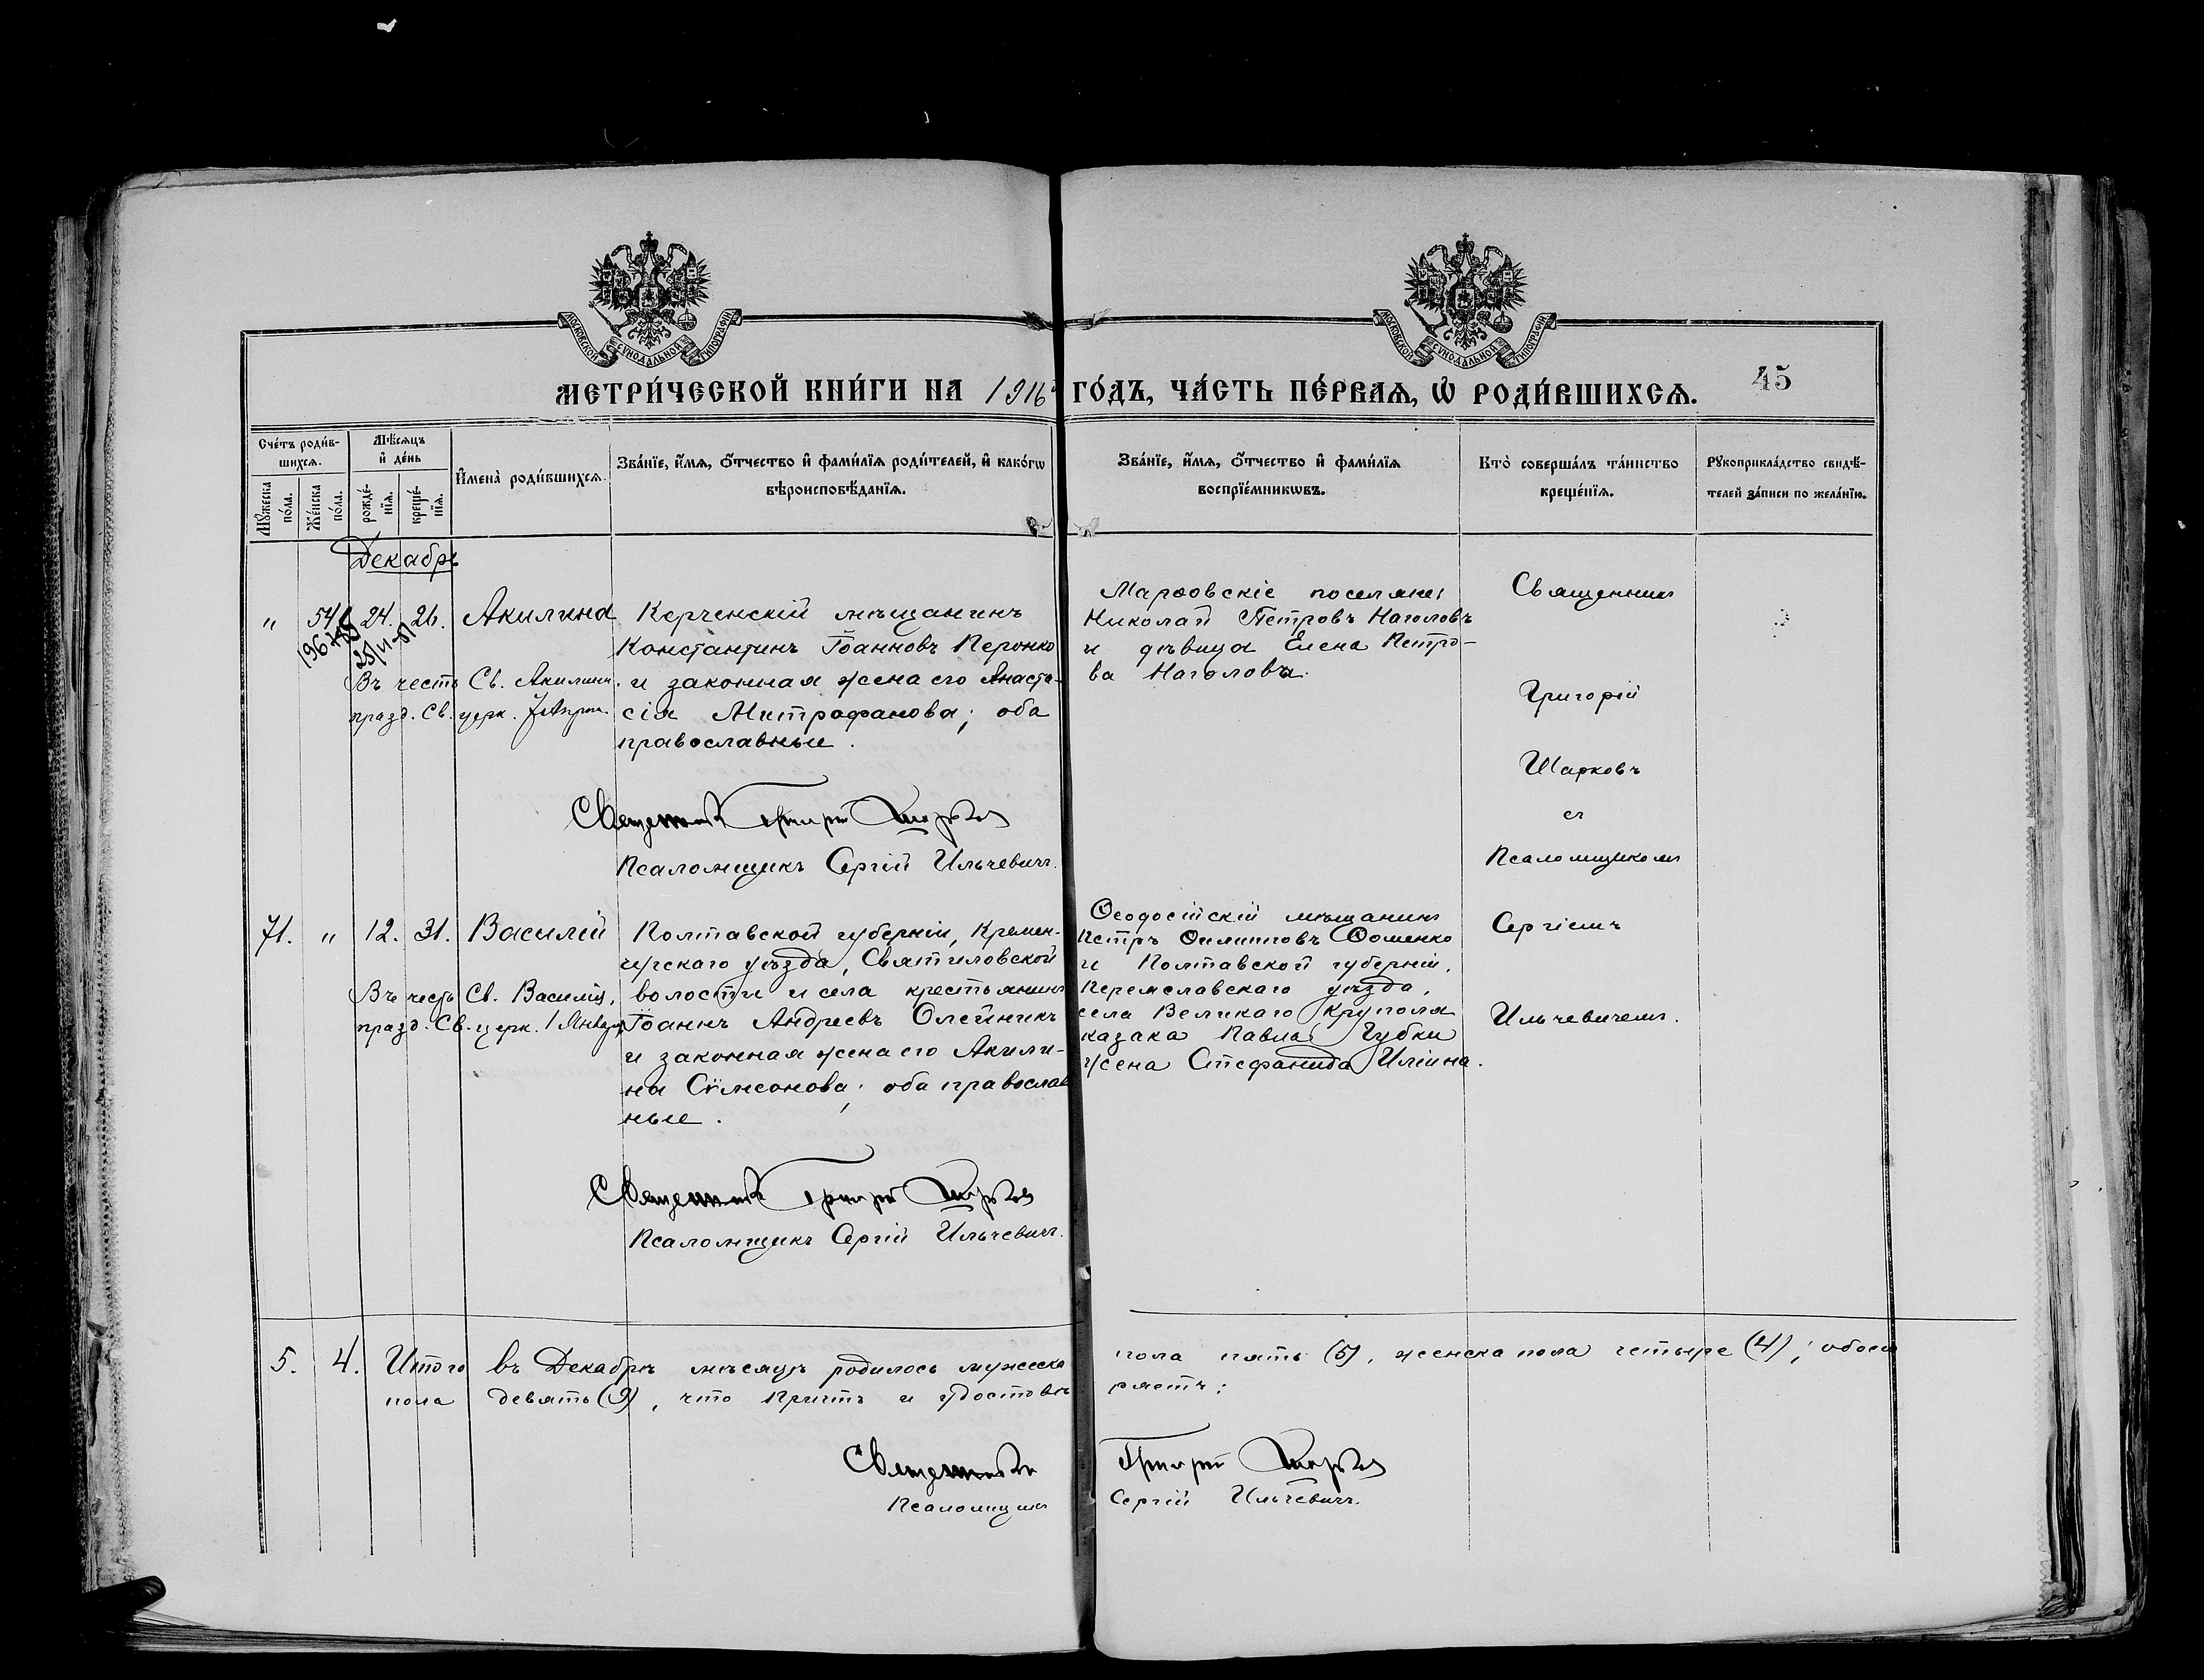 МОСКОВСКОЙ СУНОДАЛЬНОЙ ТИПОГРАФІИ
МОСКОВСКОЙ СУНОДАЛЬНОЙ ТИПОГРАФІИ
МЕТРИ́ЧЕСКОЙ КНИ́ГИ НА 1916й ГО́ДЪ, ЧА́СТЬ ПЕ́РВАѦ, Ѡ҆ РОДИ́ВШИХСѦ.
45
Сче́тъ роди́в-
шихсѧ.
Мꙋ́жеска по́ла.
Же́нска по́ла.
Мѣ́сѧцъ
и҆ де́нь
рожде́-
нїѧ.
креще́-
нїѧ.
И҆мена̀ роди́вшихсѧ.
Зва́нїе, и҆́мѧ, ѻ҆́тчество и҆ фами́лїѧ роди́телей, и҆ како́гѡ
вѣроисповѣ́данїѧ.
Зва́нїе, и҆́мѧ, ѻ҆́тчество и҆ фами́лїѧ
воспрїе́мникѡвъ.
Кто̀ соверша́лъ та́инство
креще́нїѧ.
Рꙋкоприкла́дство свидѣ́-
телей за́писи по жела́нїю.
Декабрь
" 54 24. 26. Акилина
25/II-81
Въ честь Св. Акилин.
празд. Св. церк. 7 Апрѣл.
Керченскій мѣщанинъ
Константинъ Іоанновъ Перонко
и законная жена его Анаста-
сія Митрофанова; оба
православные.
Священникъ Григорій Шарковъ
Псаломщикъ Сергій Ильчевичъ.
Марѳовскіе поселяне
Николай Петровъ Наголовъ
и дѣвица Елена Петро-
ва Наголова.
Священникъ
Григорій
Шарковъ
съ
Псаломщикомъ
Сергіемъ
Ильчевичемъ.
71. " 12. 31. Василій
Въ честь Св. Василія,
празд. Св. церк. 1 Января
Полтавской губерніи, Кремен-
чугскаго уѣзда, Святиловской
волости и села крестьянинъ
Іоаннъ Андреевъ Олейникъ
и законная жена его Акили-
на Сѵмсонова; оба православ
ные.
Священникъ Григорій Шарковъ
Псаломщикъ Сергій Ильчевичъ.
Ѳеодосійскій мѣщанинъ
Петръ Филипповъ Фоменко
и Полтавской губерніи,
Переяславскаго уѣзда,
села Великаго Круполя
казака Павла Губки
жена Стефанида Иліина.
5. 4. Итого въ Декабрѣ мѣсяцѣ родилось мужеска пола пять (5), женска пола четыре (4); обоего
пола девять (9), что Причтъ и удостовѣ ряетъ:
Священникъ Григорій Шарковъ
Псаломщикъ Сергій Ильчевичъ.